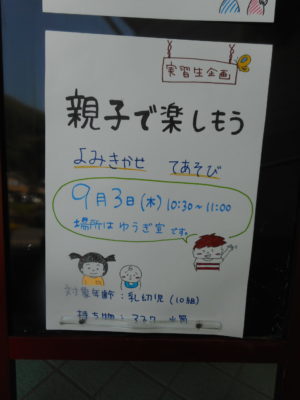 実習生企画
親子で楽しもう
よみきかせ てあそび
9月3日(木) 10:30~11:00
場所は ゆうぎ室 です。
対象年齢:乳幼児(10組)
持ち物:マスク 水筒